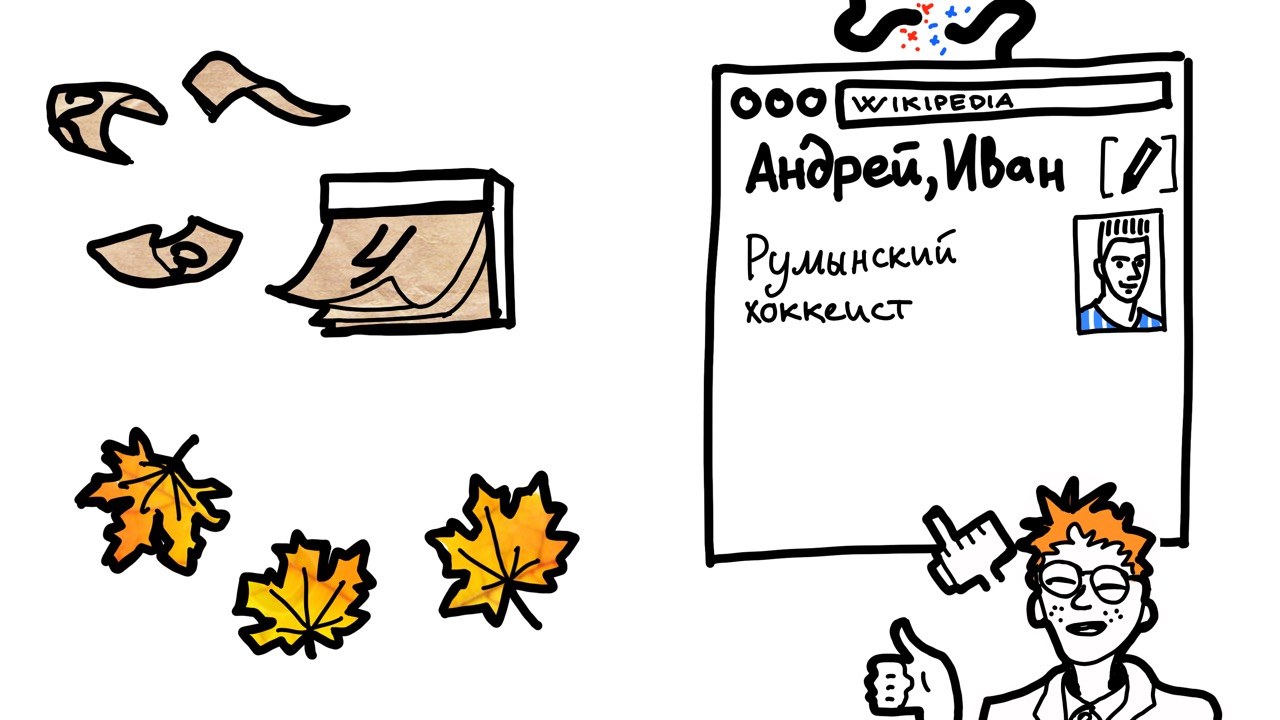 2
0
4
WIKIPEDIA
Андрей, Иван
Румынский
хоккеист